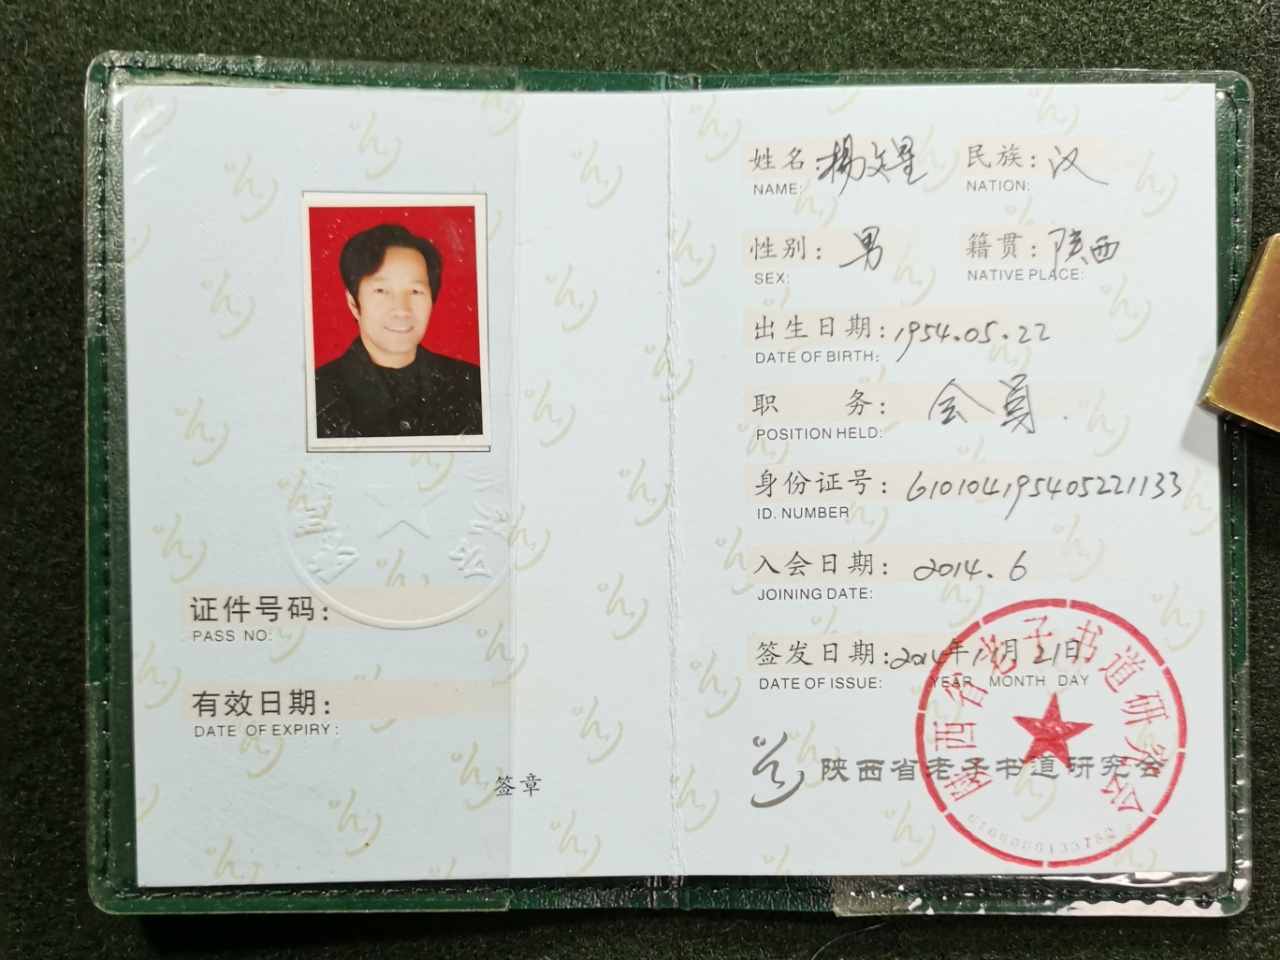 证件号码：
PASS NO:
有效日期：
DATE OF EXPIRY:
签章
姓名：楊文星 民族：汉
NAME: NATION:
性别：男 籍贯：陕西
SEX: NATIVE PLACE:
出生日期：1954.05.22
DATE OF BIRTH:
职 务：会员
POSITION HELD:
身份证号：610104195405221133
ID. NUMBER
入会日期：2014.6
JOINING DATE:
签发日期：2014年11月21日
DATE OF ISSUE: YEAR MONTH DAY
陕西省老子书道研究会
陕西省老子书道研究会